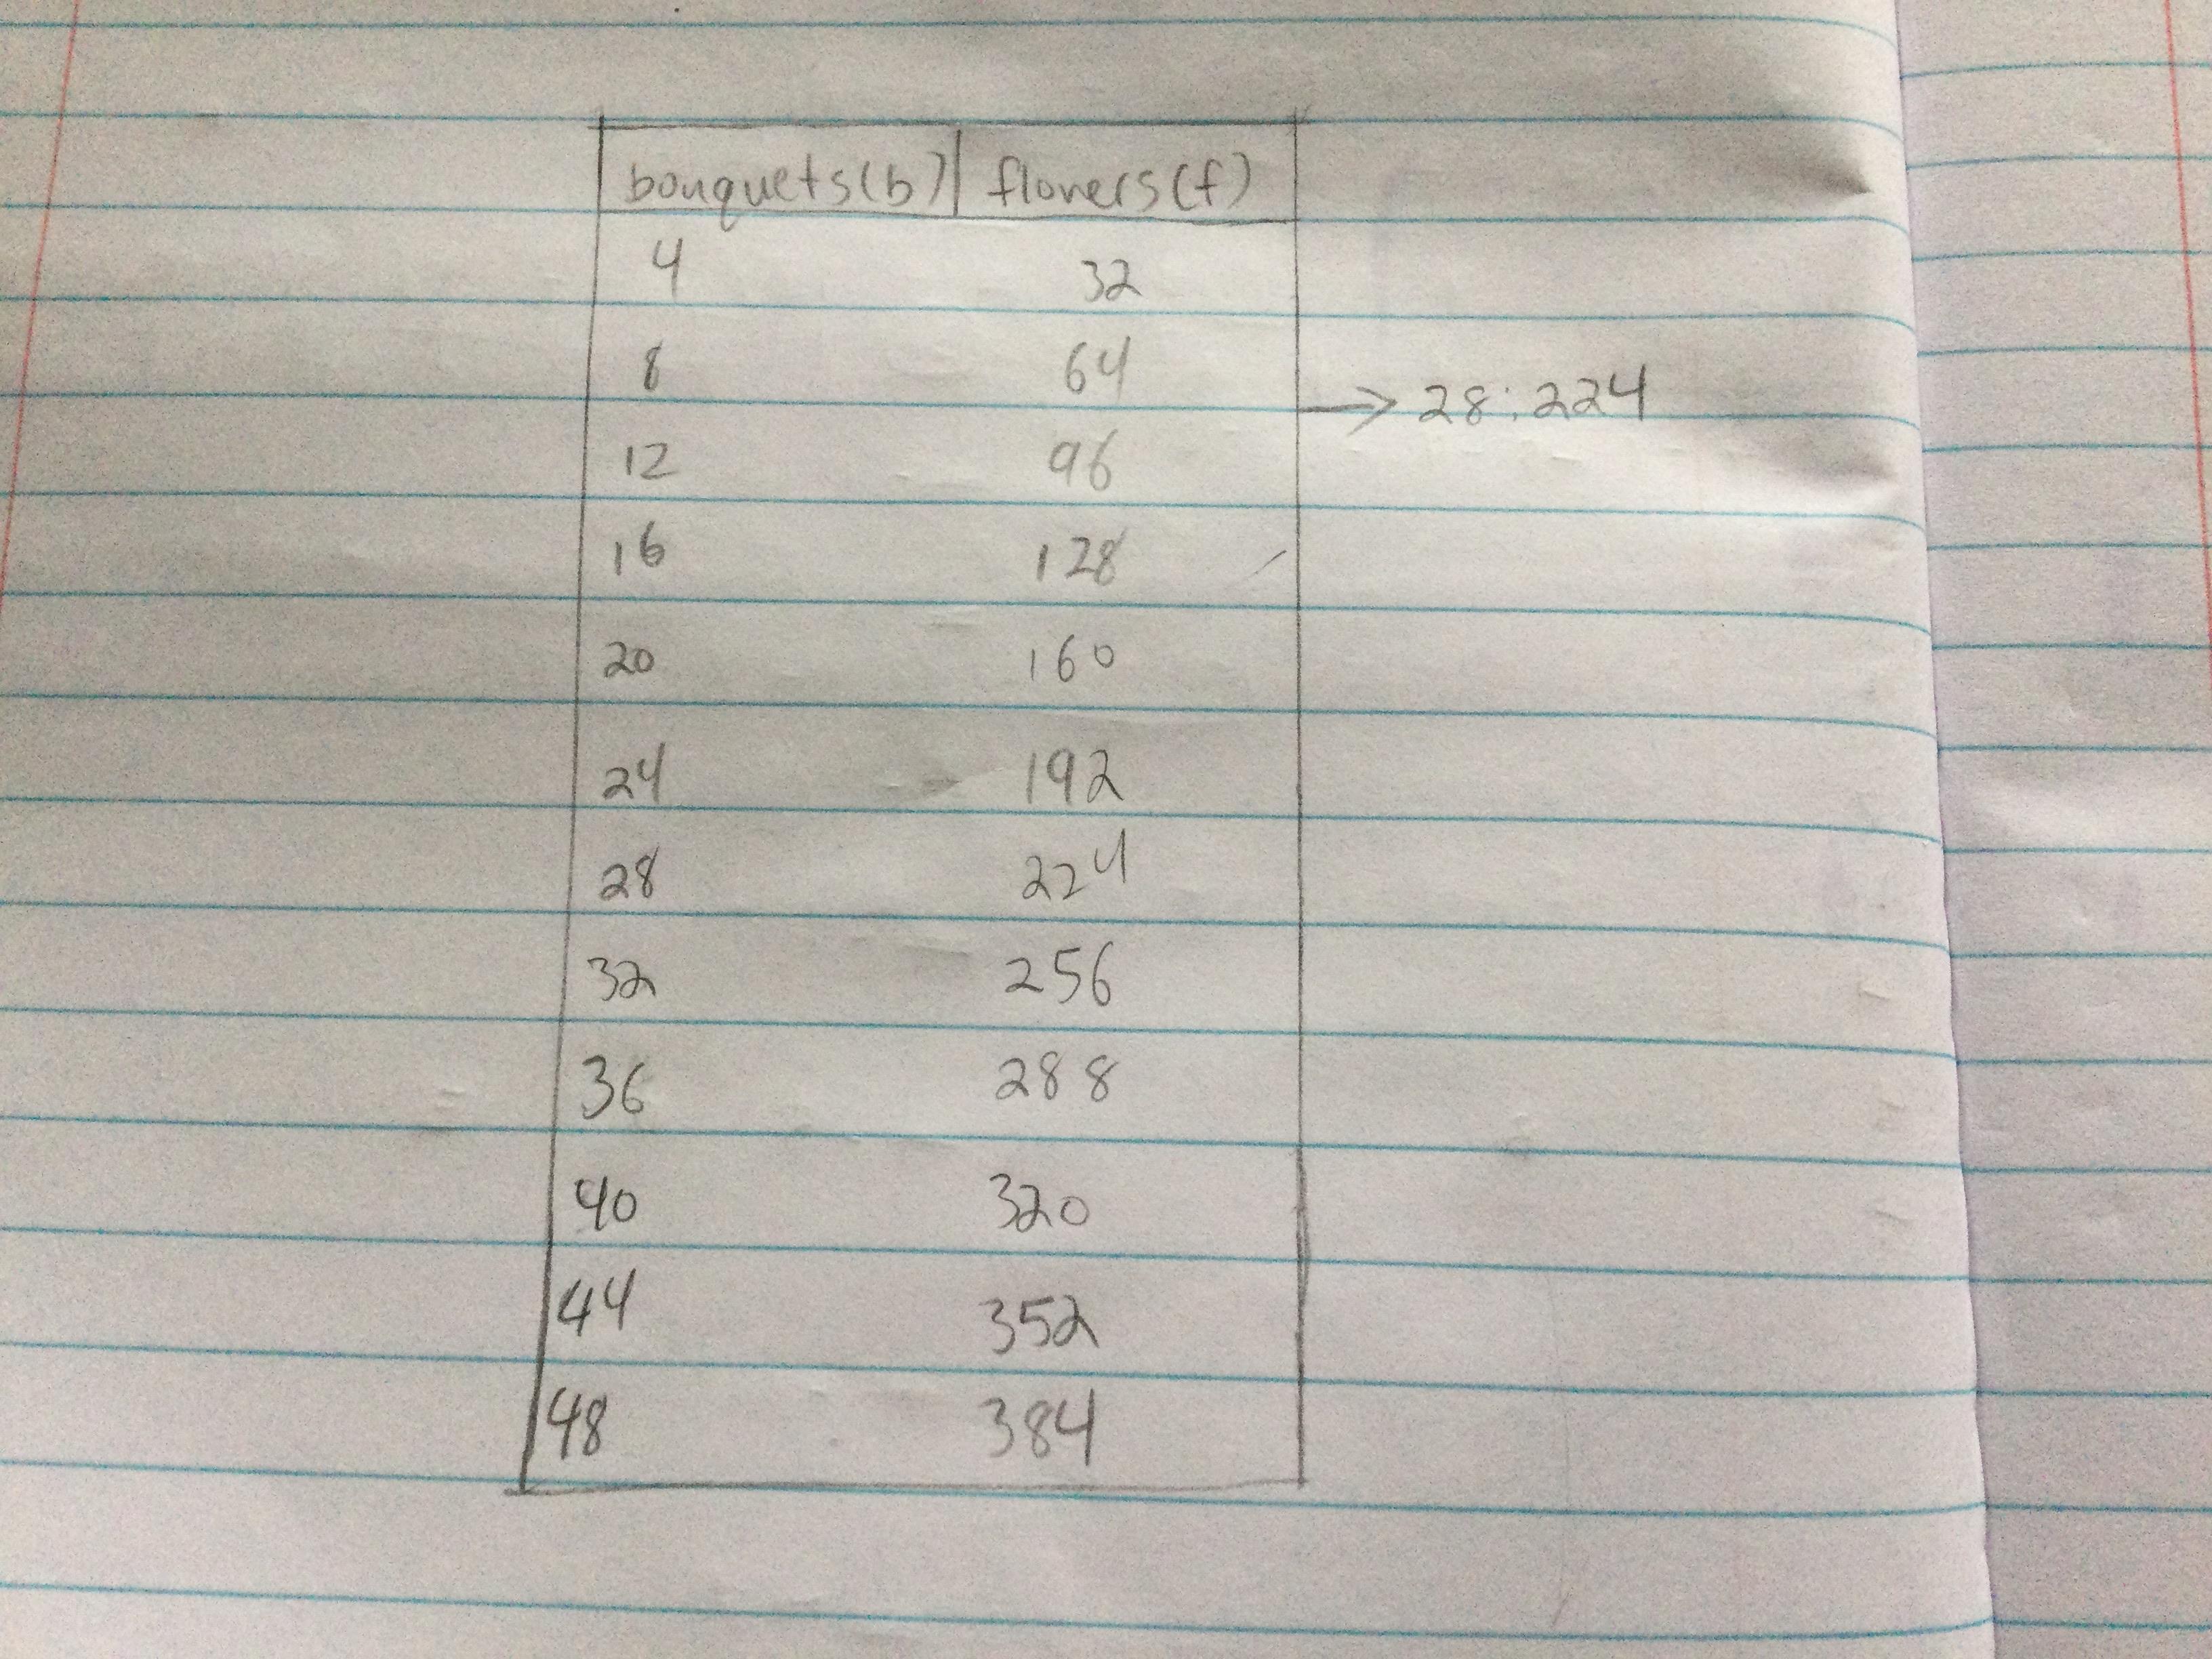 bouquets(b) flowers(f)
4 32
8 64
→ 28:224
12 96
16 128
20 160
24 192
28 224
32 256
36 288
40 320
44 352
48 384